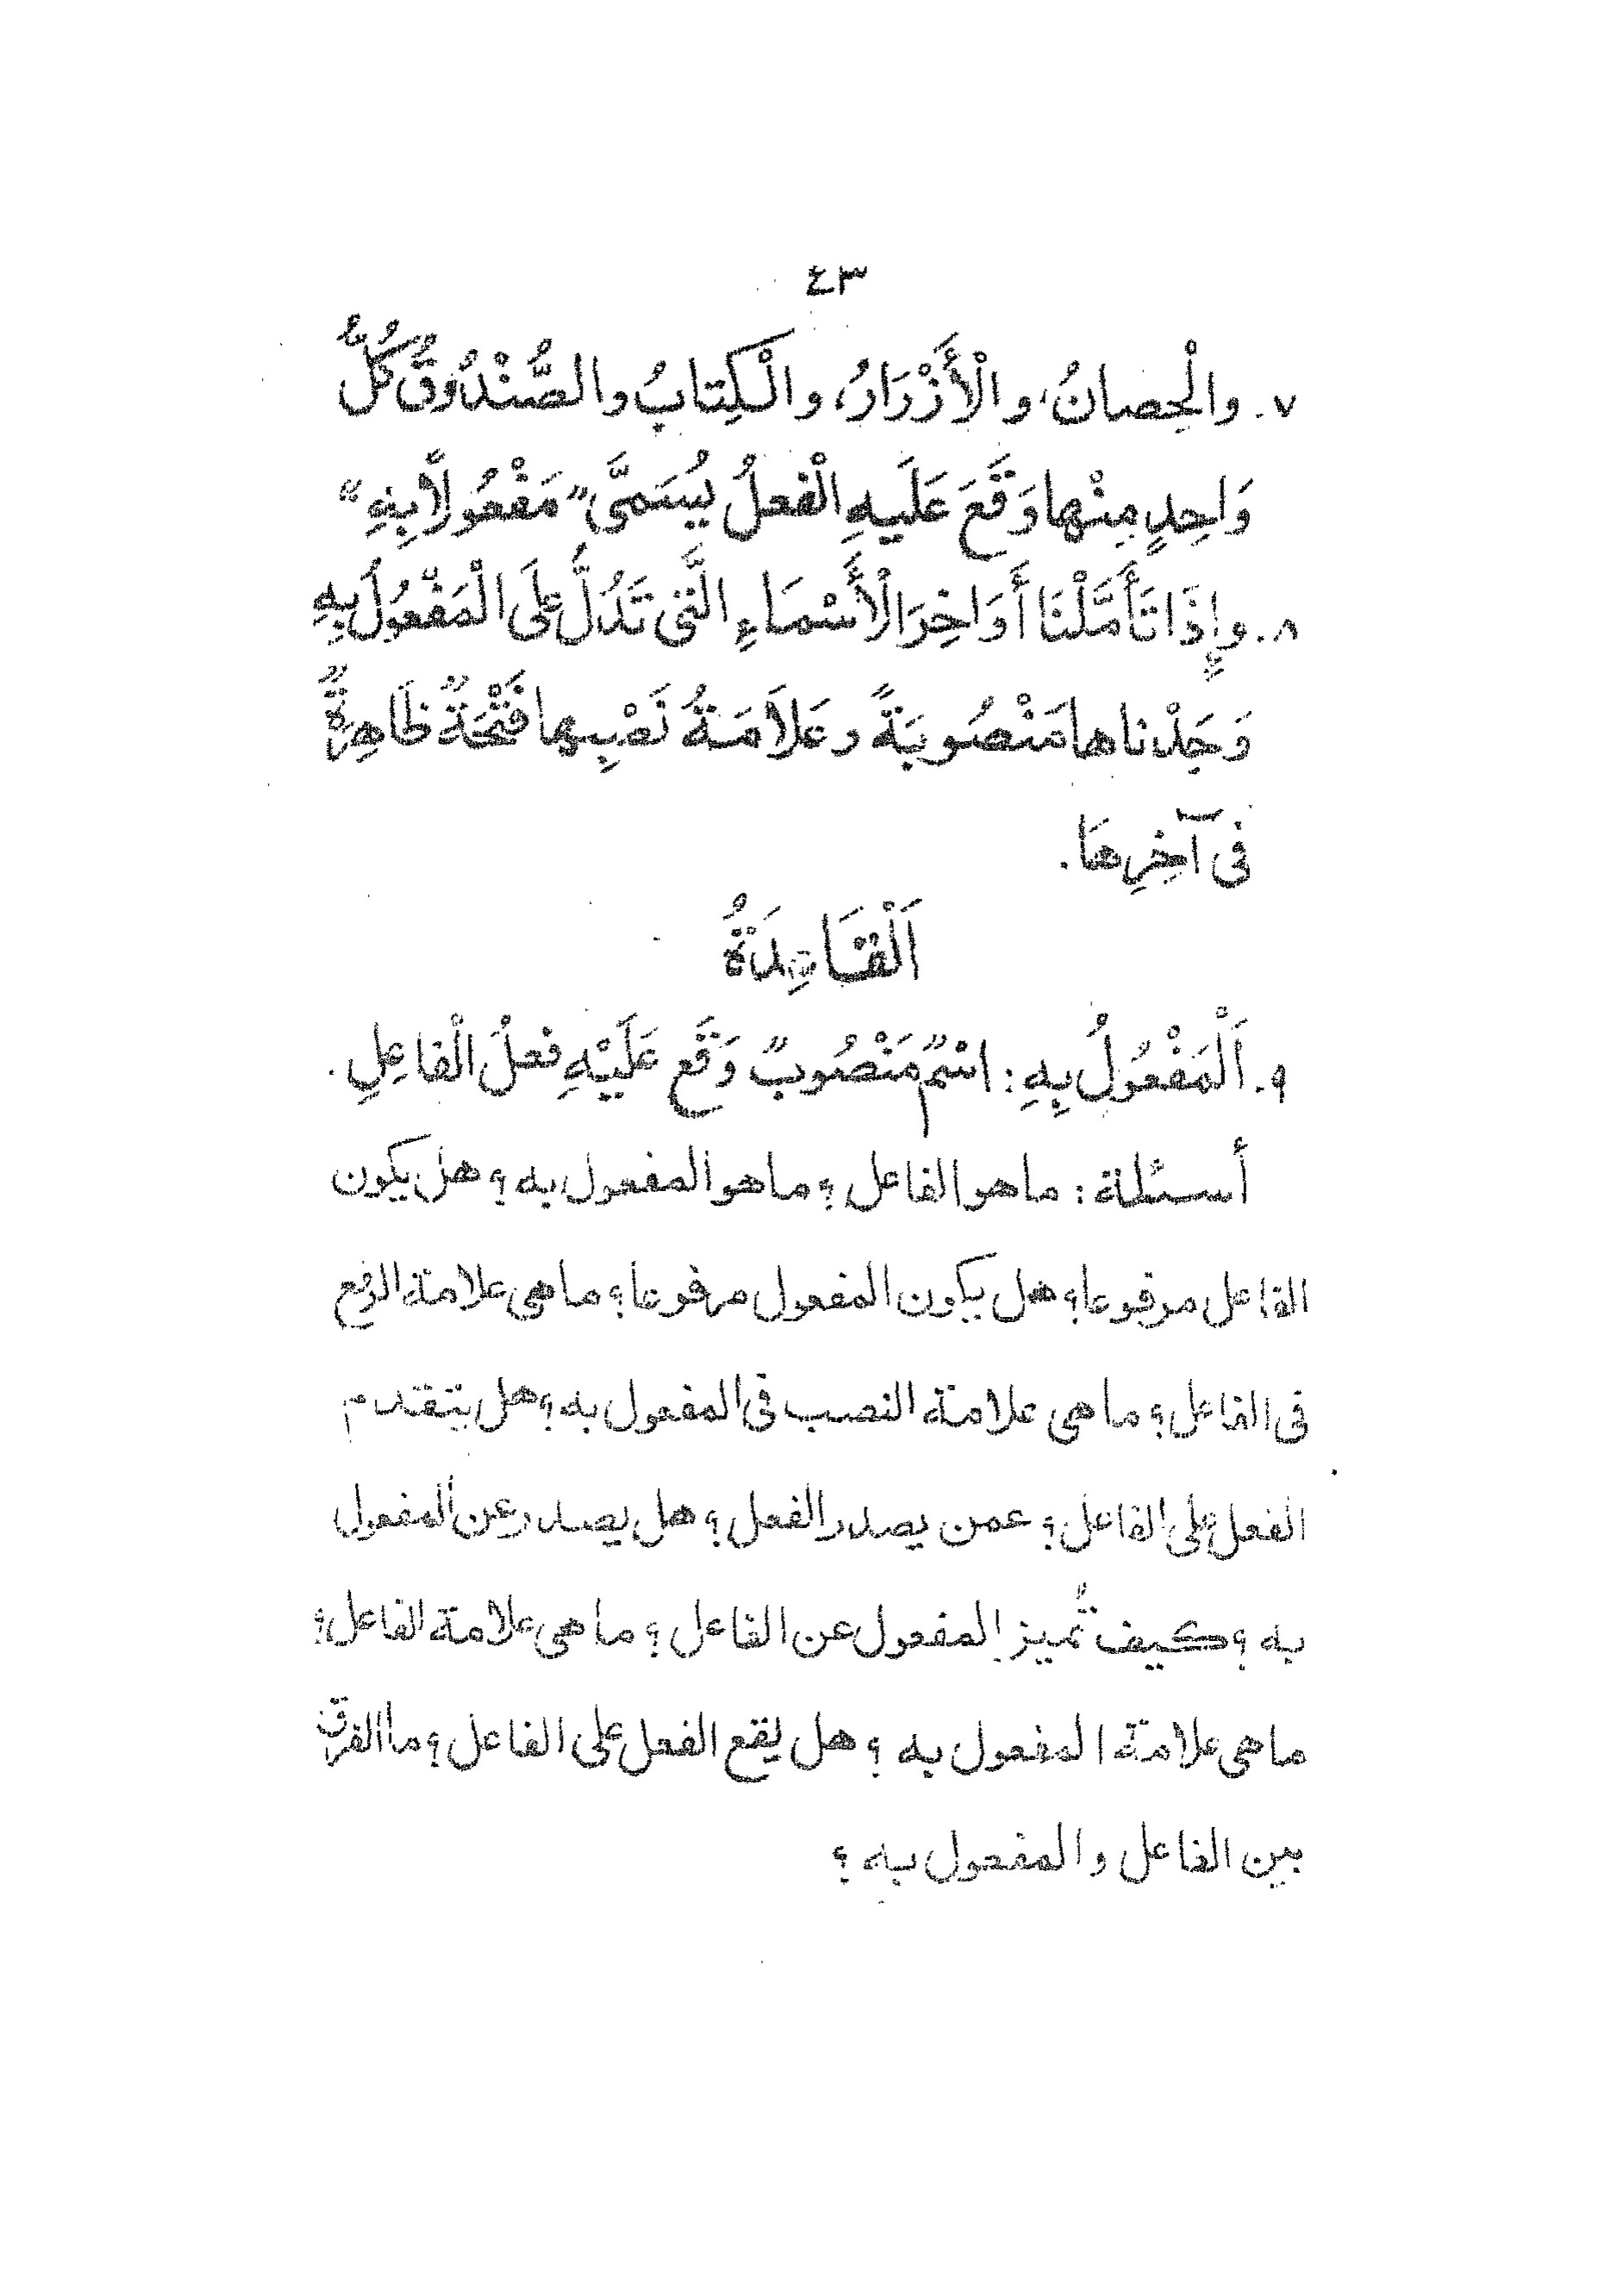 ٤٣
٧. والْحِصانُ، و الْأَزْرَارُ، و الْكِتابُ والصُّنْدُوقُ كُلُّ
وَاحِدٍ مِنْها وَقَعَ عَلَيهِ الْفعلُ يُسَمَّى "مَفْعُولًا بِهِ"
٨. وإِذَا تَأَمَّلْنَا أَوَاخِرَ الْأَسْمَاءِ الَّتِى تَدُلُّ عَلَى الْمَفْعُولِ بِهِ
وَجَدْناها مَنْصُوبَةً وعَلاَمَةُ نَصْبِها فَتْحَةٌ ظَاهِرةٌ
فى آخِرِهَا.
اَلْقَاعِدَةُ
٩. اَلْمَفْعُولُ بِهِ: اسْمٌ مَنْصُوبٌ وَقَع عَلَيْهِ فعلُ الْفاعِلِ.
أسئلة: ما هو الفاعل؟ ما هو المفعول به؟ هل يكون
الفاعل مرفوعا؟ هل يكون المفعول مرفوعا؟ ما هى علامة الرفع
فى الفاعل؟ ما هى علامة النصب فى المفعول به؟ هل يتقدم
الفعل على الفاعل؟ عمن يصدر الفعل؟ هل يصدر عن المفعول
به؟ كيف تُميز المفعول عن الفاعل؟ ما هى علامة الفاعل؟
ما هى علامة المفعول به؟ هل يقع الفعل على الفاعل؟ ما الفرق
بين الفاعل والمفعول به؟